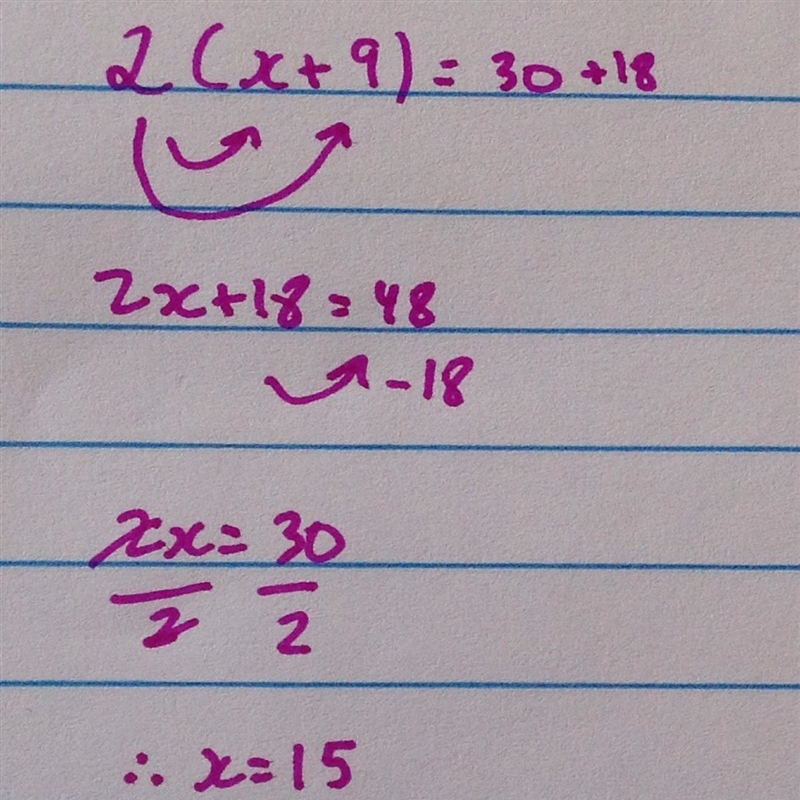 2(x+9)=30+18
2x+18=48
-18
2x=30
2 2
∴ x=15